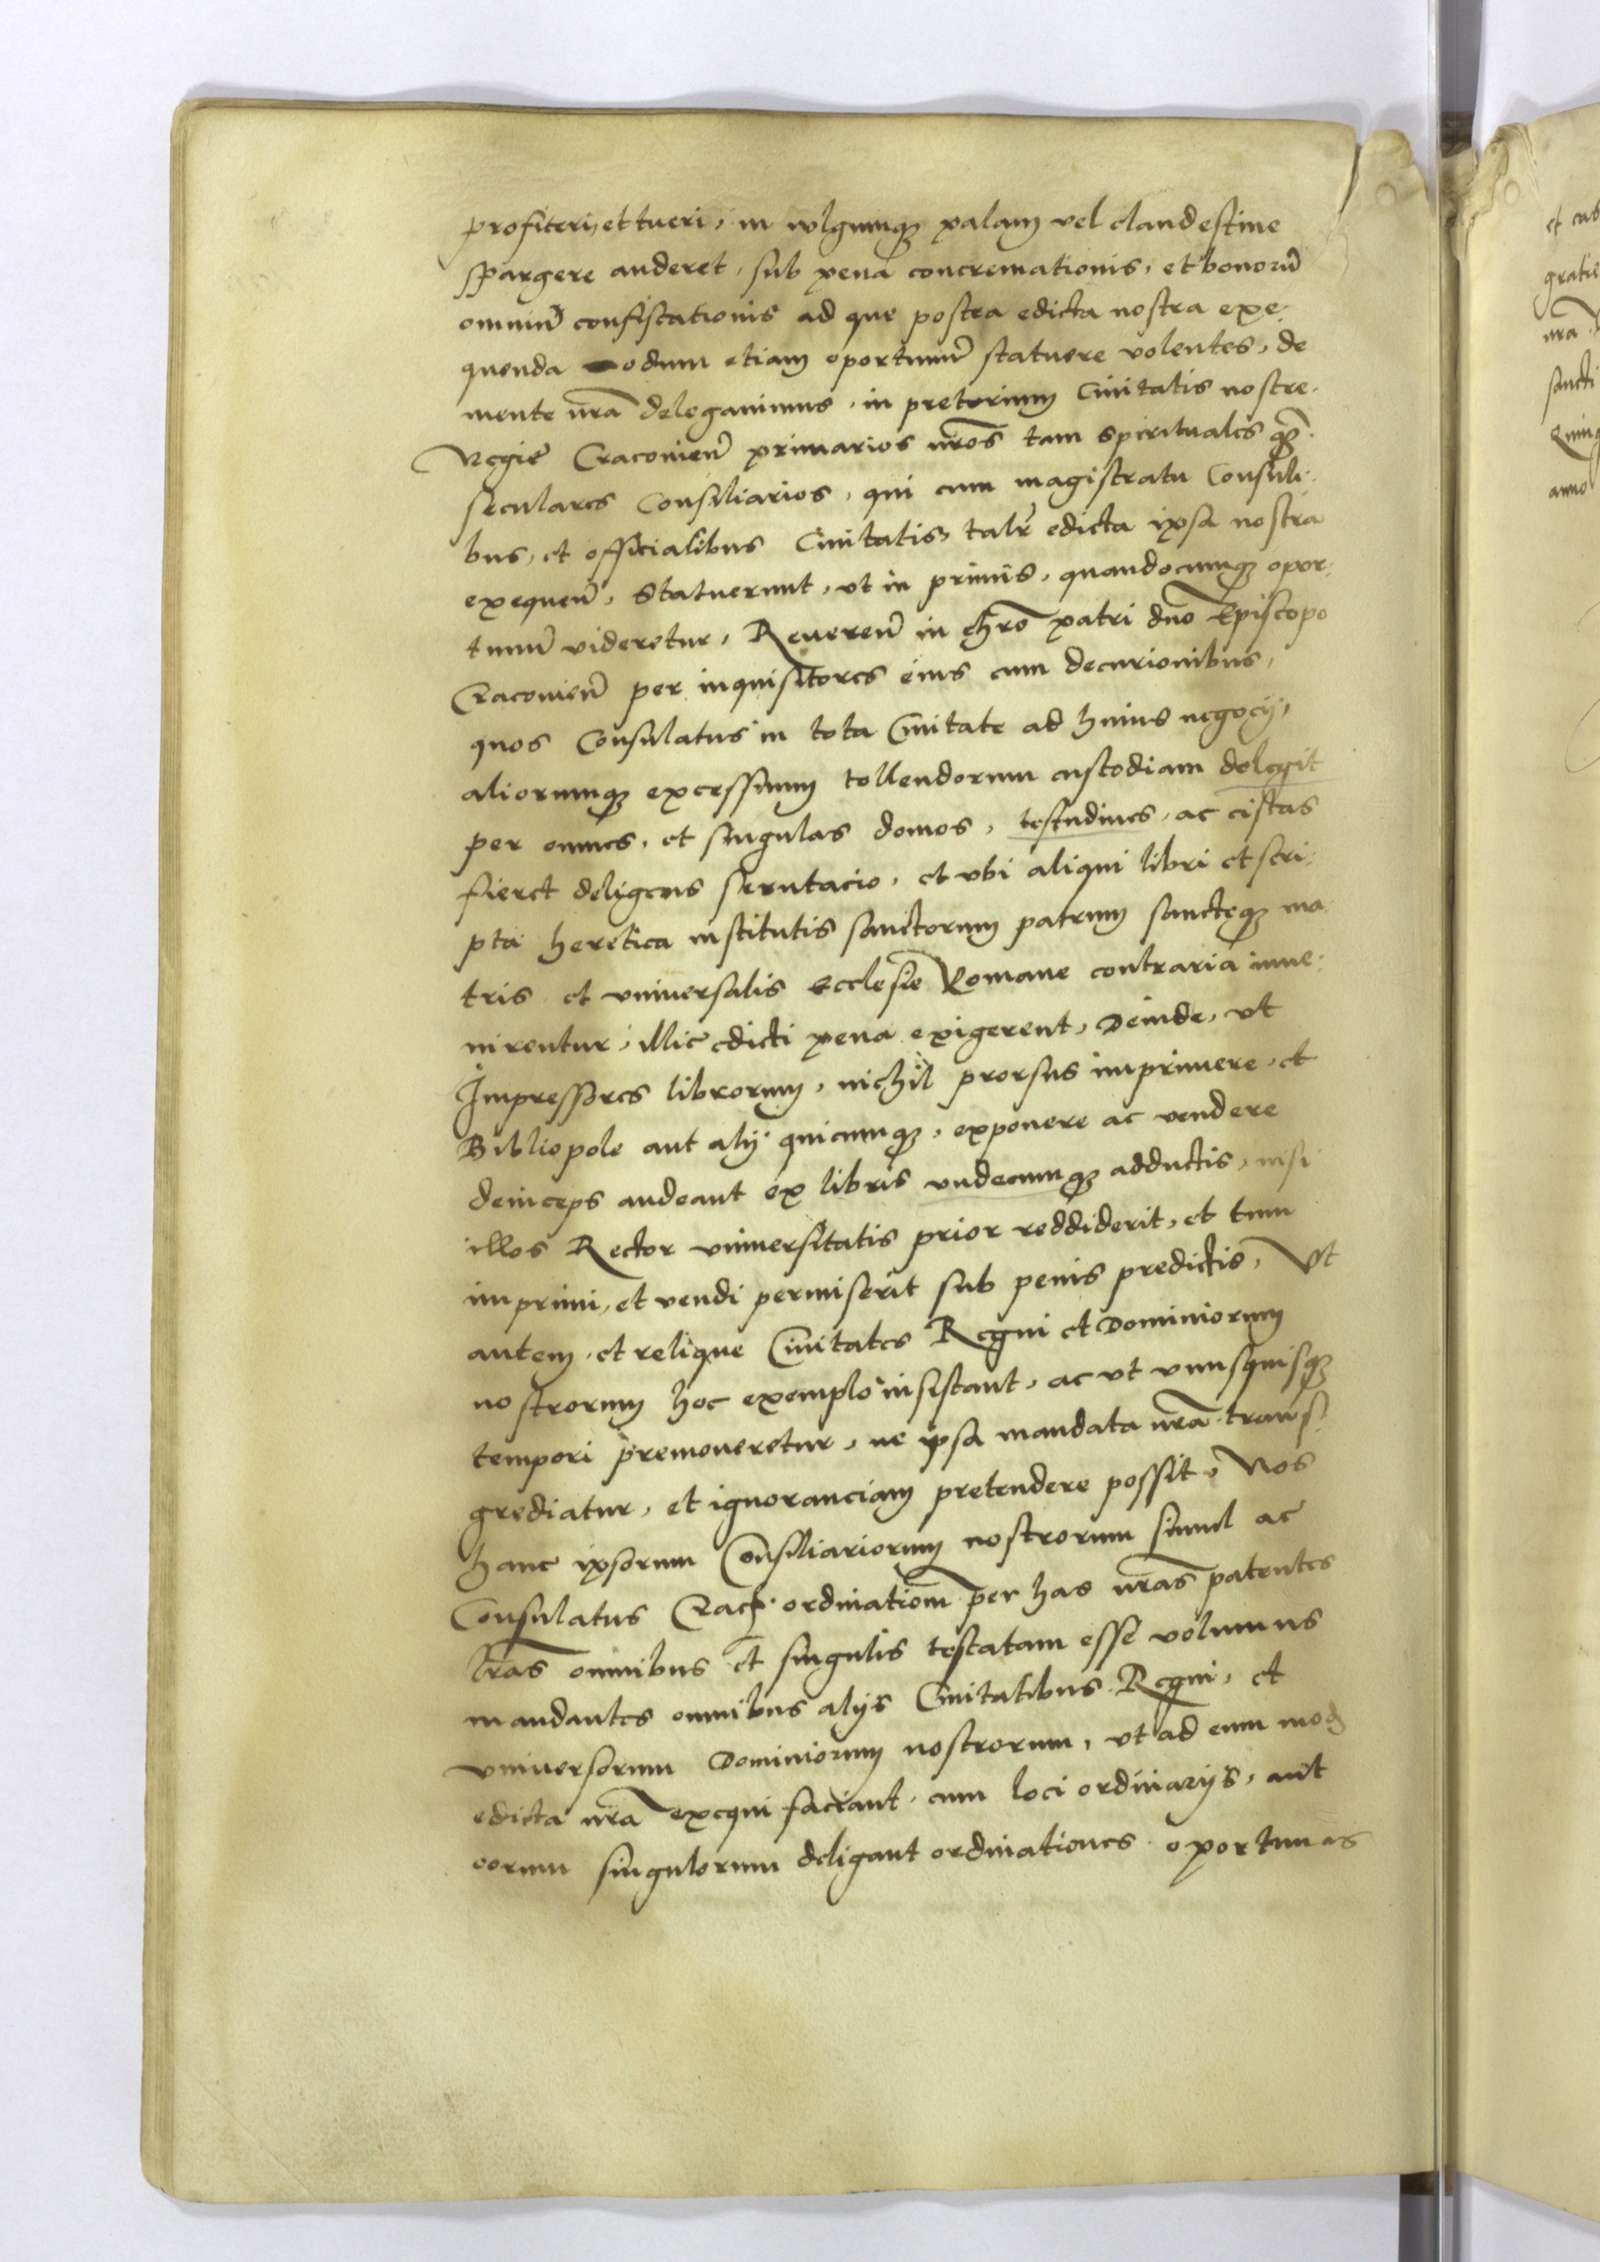 profiteri, et tueri, in vulgumq palam vel clandestine
spargere auderet, sub pena concremationis, et bonorū
omniū confiscationis ad que postea edicta nostra exe-
quenda modum etiam oportunū statuere volentes, de
mente nrā delegauimus, in pretorium Ciuitatis nostre
Regie Cracouien̄ primarios nrōs tam spirituales q̄
seculares Consiliarios, qui cum magistratu Consuli-
bus, et officialibus Ciuitatis, talr̄ edicta ipsa nostra
exequen̄, Statuerunt, vt in primis, quandocumq opor-
tunū videretur, Reueren̄ in chrō patri dnō Episcopo
Cracouien̄ per inquisitores eius cum decurionibus,
quos Consulatus in tota Ciuitate ad huius negocij,
aliorumq excessuum tollendorum custodiam delegit
per omnes, et singulas domos, testudines, ac cistas
fieret deligens scrutacio, et vbi aliqui libri et scri-
pta heretica institutis sanctorum patrum sancteq ma
tris et vniuersalis Ecclesie Romane contraria inue-
nirentur, illic edicti pena exigerent, Deinde, vt
Impressores librorum, nichil prorsus imprimere, et
Bibliopole aut alij quicumq, exponere ac vendere
deinceps audeant ex libris vndecumq adductis, nisi
illos Rector vniuersitatis prior reddiderit, et tum
imprimi, et vendi permiserit sub penis predictis, Vt
autem, et relique Ciuitates Regni et Dominiorum
nostrorum hoc exemplo insistant, ac vt vnusquisq
tempori premoueretur, ne ipsa mandata nrā trans-
grediatur, et ignoranciam pretendere possit, Nos
hanc ipsorum Consiliariorum nostrorum simul ac
Consulatus Crac. ordinatiom̄ per has nrās patentes
lrās omnibus et singulis testatam esse volumus
mandantes omnibus alijs Ciuitatibus Regni, et
vniuersorum Dominiorum nostrorum, vt ad eum mod
edicta nrā exequi faciant, cum loci ordinarijs, aut
eorum singulorum deligant ordinationes oportunas
gratie
nrā
sancti
anno